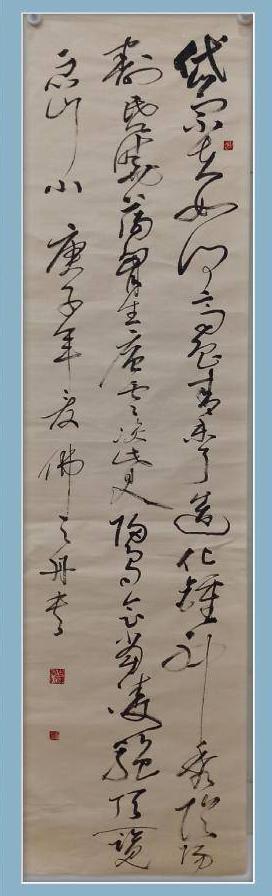 岱宗夫如何齊魯青未了造化鍾神秀陰陽
割昏曉蕩胸生層雲決眥入歸鳥會當凌絕頂一覽
眾山小 庚子年